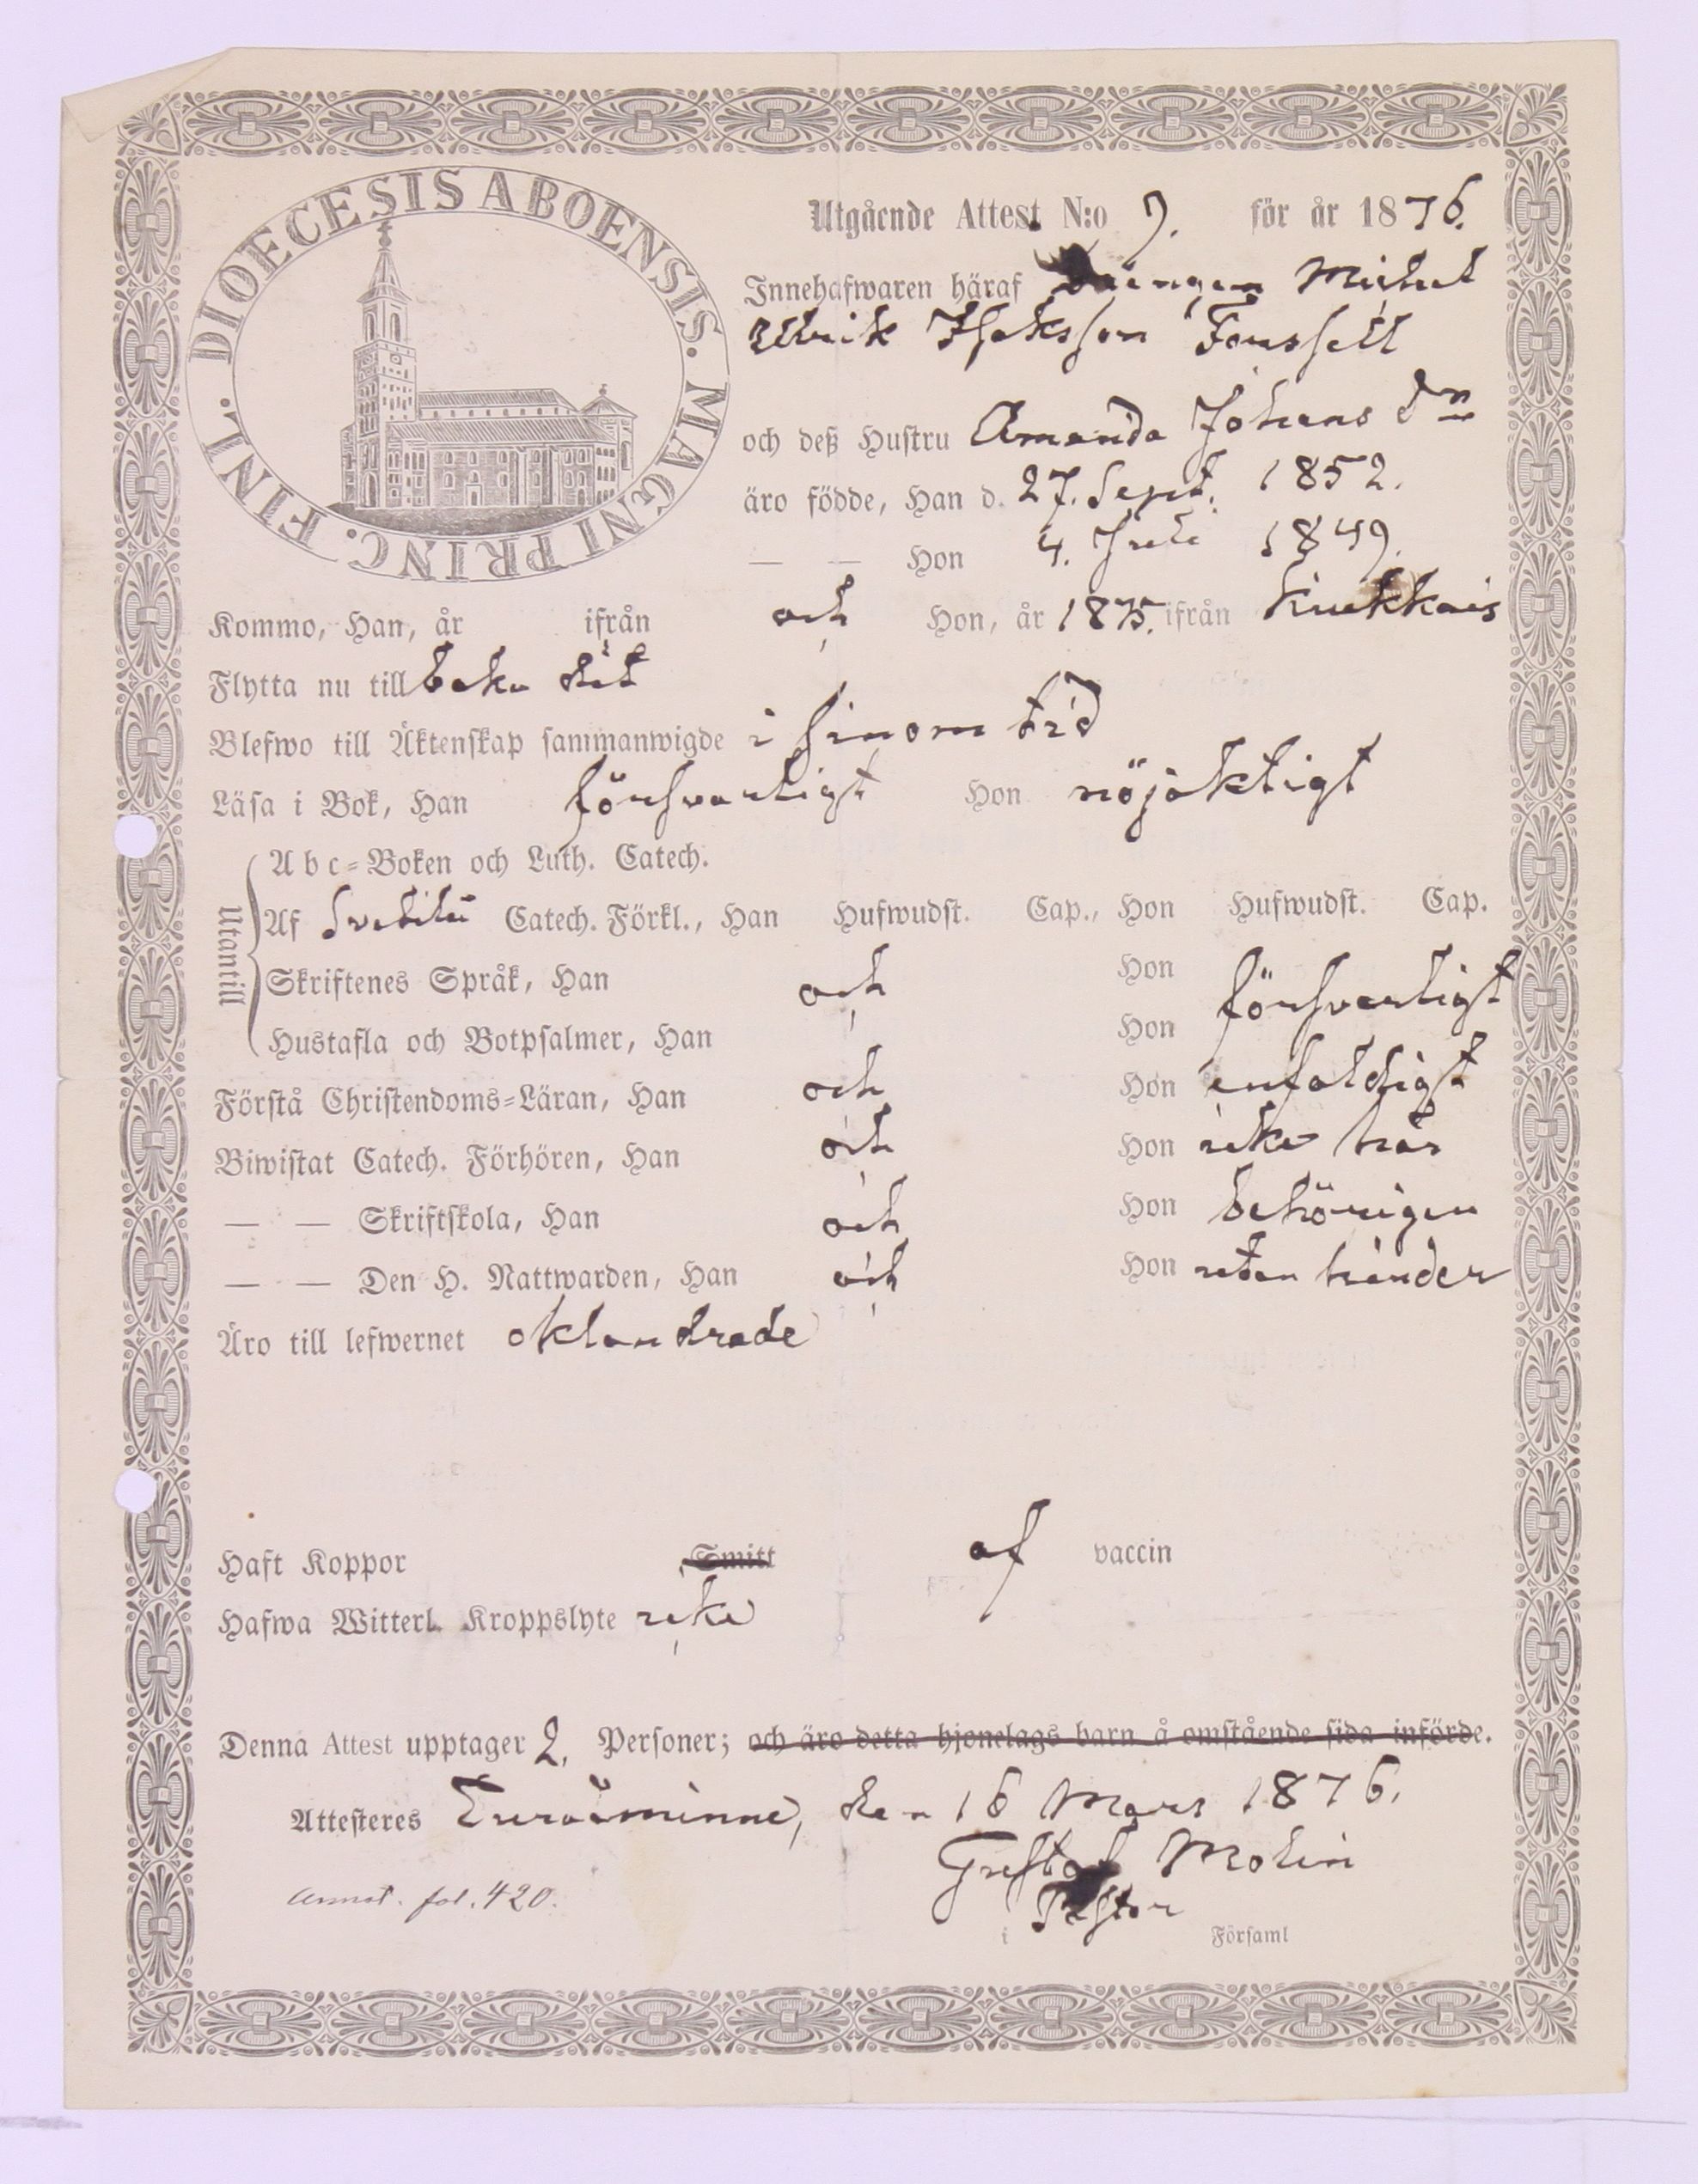 DIOECESIS ABOENSIS. MAGNI PRINC. FINL.
Utgående Attest N:o 7. för år 1876.
Innehafwaren häraf Drengen Michel
Ulrik Isaksson Forssell
och deß Hustru Amanda Johans dn
äro födde, Han d. 27. Sept. 1852.
— — Hon 4. 1849.
Kommo, Han, år ifrån och Hon, år 1875. ifrån Kiukkais
Flytta nu till baka dit
Blefwo till Äktenskap sammanwigde i sinom tid
Läsa i Bok, Han försvarligt Hon nöjaktigt
Utantill
Abc-Boken och Luth. Catech.
Af Svebilii Catech. Förkl., Han Hufwudst. Cap., Hon Hufwudst. Cap.
Skriftenes Språk, Han och Hon försvarligt
Hustafla och Botpsalmer, Han Hon
Förstå Christendoms-Läran, Han och Hon enfaldigt
Biwistat Catech. Förhören, Han och Hon icke här
— — Skriftskola, Han och Hon behörigen
— — Den H. Nattwarden, Han och Hon utan hinder
Äro till lefwernet oklandrade
Haft Koppor Smitt af vaccin
Hafwa Witterl. Kroppslyte icke
Denna Attest upptager 2. Personer; och äro detta hjonelags barn å omstående sida införde.
Attesteres Euraåminne, den 16 Mars 1876.
Gustaf Molin
Annot. fol. 420.
Pastor
i Församl